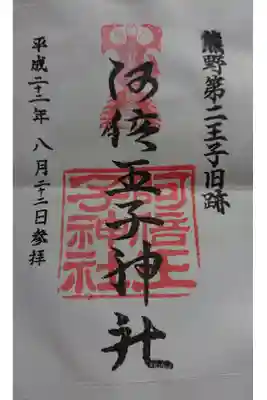 熊野第二王子旧跡
阿倍王子神社
平成二十二年 八月二十二日参拝
阿倍王
子神社